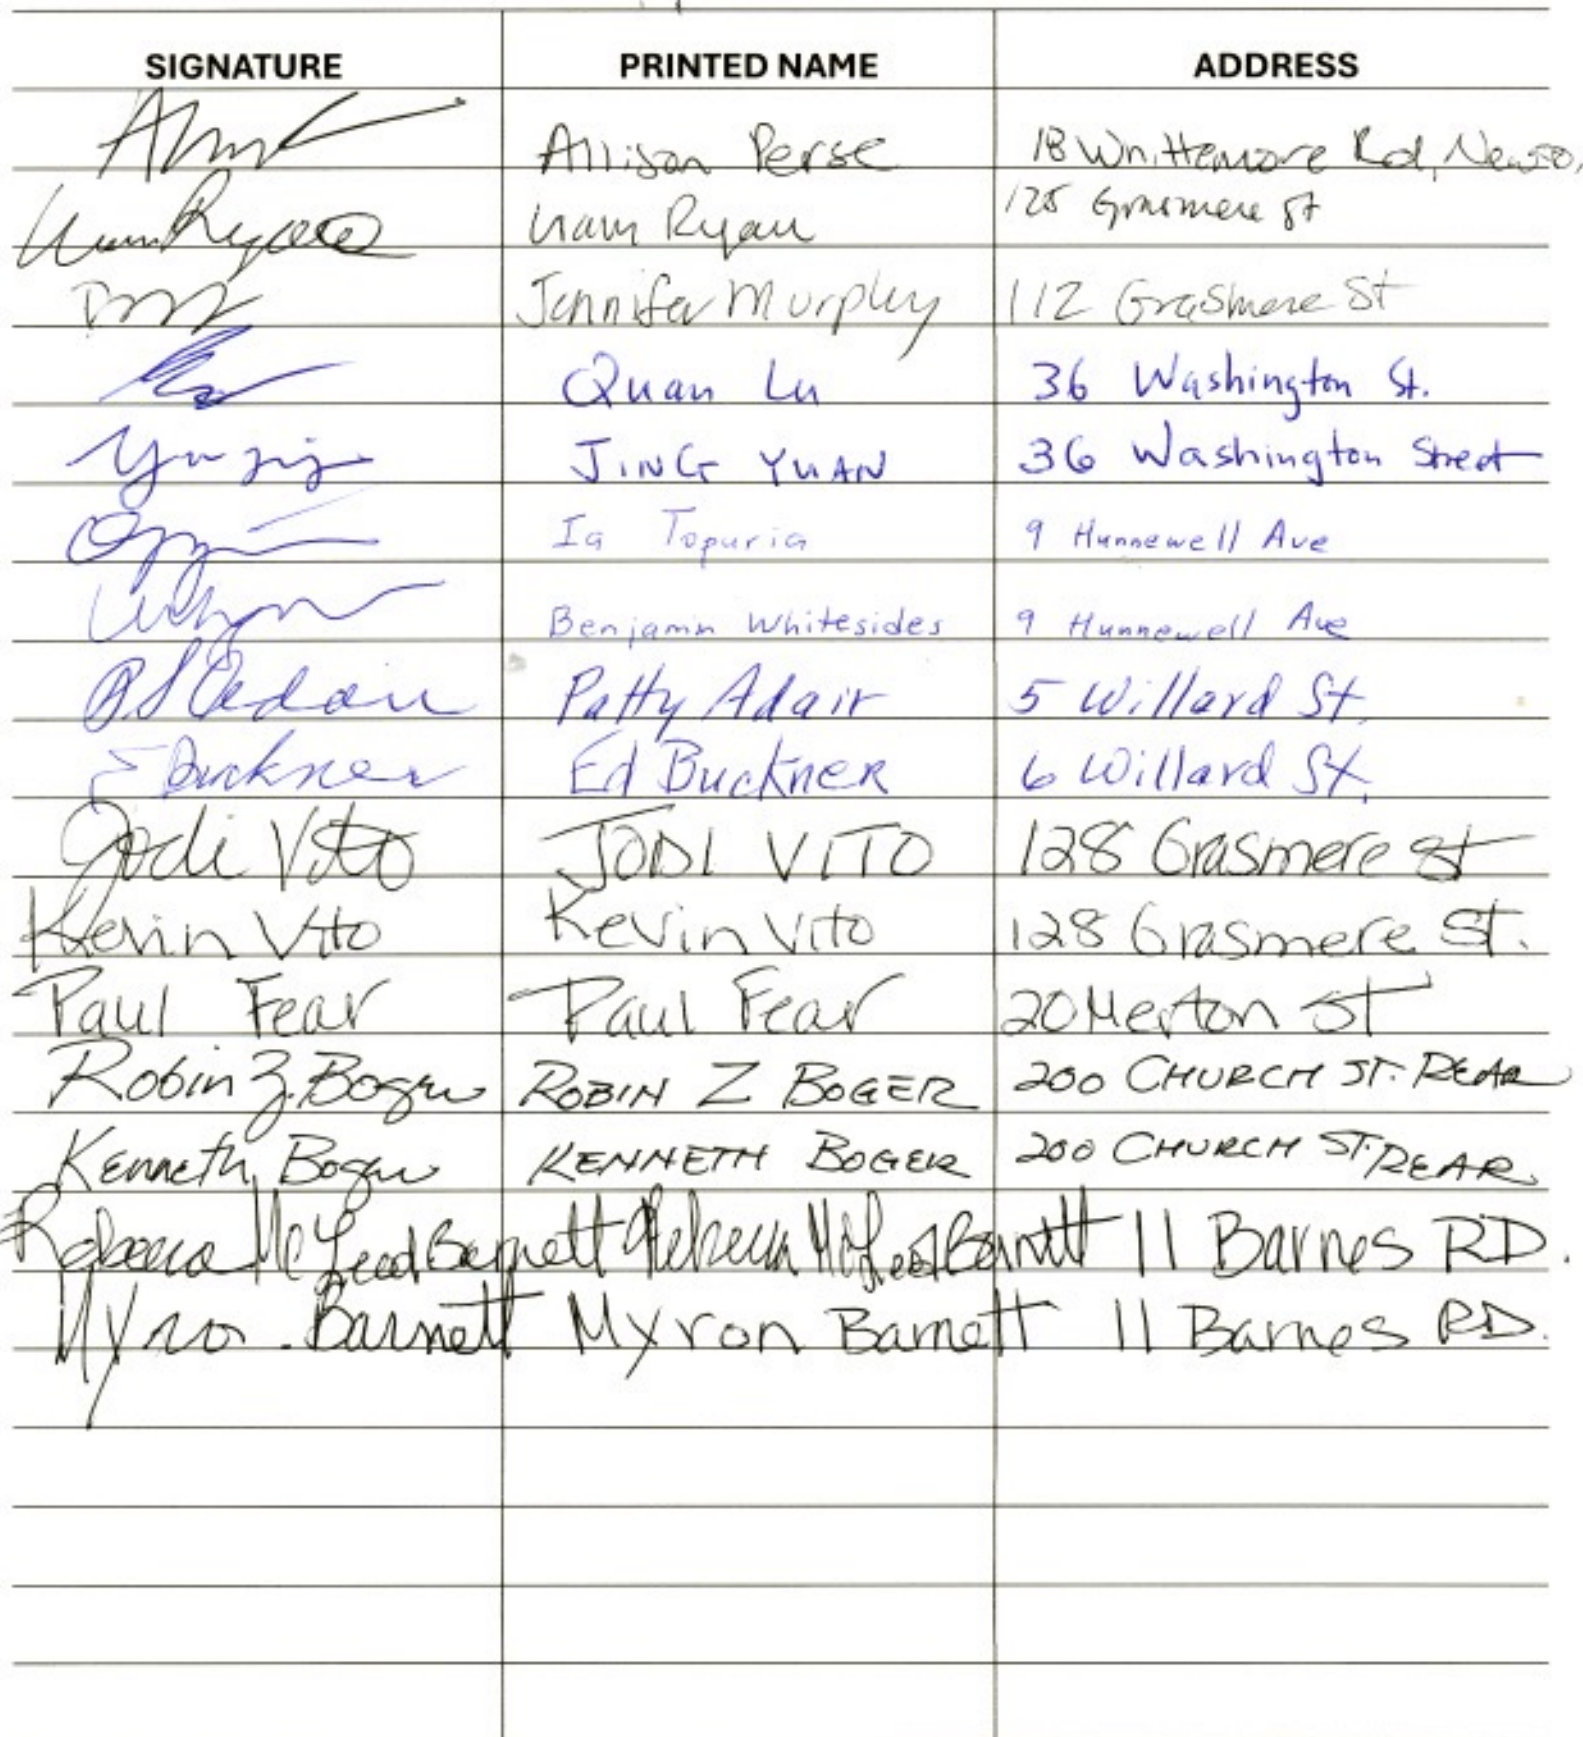 SIGNATURE PRINTED NAME ADDRESS
Allison Perse 18 Whittemore Rd, Newto
Liam Ryan 125 Grasmere St
Jennifer Murphy 112 Grasmere St
Quan Lu 36 Washington St.
JING YUAN 36 Washington Street
Ia Topuria 9 Hunnewell Ave
Benjamin Whitesides 9 Hunnewell Ave
Patty Adair 5 Willard St.
E Buckner Ed Buckner 6 Willard St.
Jodi Vito JODI VITO 128 Grasmere St
Kevin Vito Kevin Vito 128 Grasmere St.
Paul Fear Paul Fear 20 Merton St
Robin Z. Boger ROBIN Z BOGER 200 CHURCH ST. REAR
Kenneth Boger KENNETH BOGER 200 CHURCH ST. REAR
Rebecca McLeod Barnett Rebecca McLeod Barnett 11 Barnes RD.
Myron Barnett Myron Barnett 11 Barnes RD.